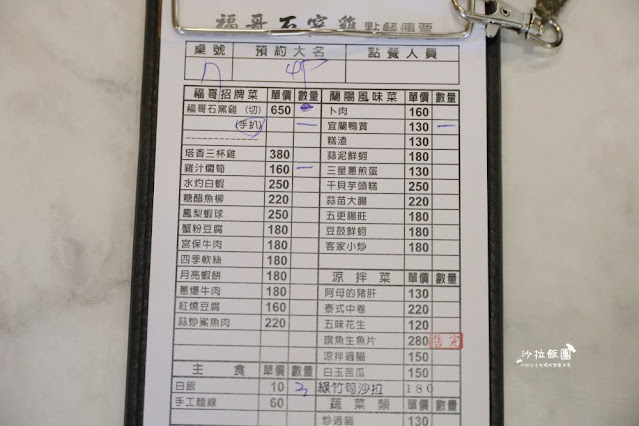 福哥石窯雞 點餐傳票
桌號 預約大名 點餐人員
7
福哥招牌菜 單價 數量
福哥石窯雞 (切) 650
(手扒) 一
塔香三杯雞 380
雞汁燜筍 160 一
水灼白蝦 250
糖醋魚柳 220
鳳梨蝦球 250
蟹粉豆腐 180
宮保牛肉 180
四季軟絲 180
月亮蝦餅 180
蔥爆牛肉 180
紅燒豆腐 160
蒜炒鯊魚肉 220
主食 單價 數量
白飯 10 3
手工麵線 60
蘭陽風味菜 單價 數量
卜肉 160
宜蘭鴨賞 130 一
糕渣 130
蒜泥鮮蚵 180
三星蔥煎蛋 130
干貝芋頭糕 250
蒜苗大腸 220
五更腸旺 180
豆鼓鮮蚵 180
客家小炒 180
涼拌菜 單價 數量
阿母的豬肝 130
泰式中卷 220
五味花生 120
旗魚生魚片 280 售完
涼拌過貓 150
白玉苦瓜 150
綠竹筍沙拉 180
蔬菜類 單價 數量
炒過貓 130
沙拉飯團